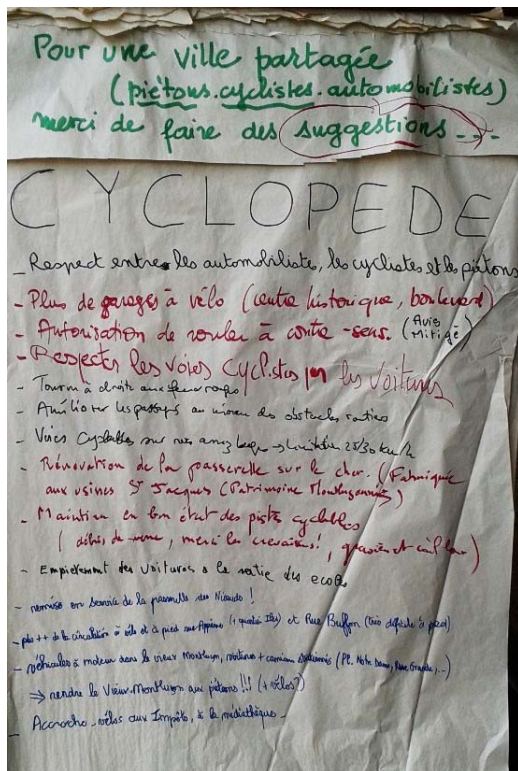 Pour une ville partagée
(piétons.cyclistes.automobilistes)
merci de faire des suggestions...
CYCLOPEDE
- Respect entre les automobiliste, les cyclistes et les piétons
- Plus de garages à vélo (centre historique, boulevard)
- Autorisation de rouler à contre-sens. (Avis Mitigé)
- Respecter les voies cyclistes par les voitures
- Tourner à droite aux feux rouges
- Améliorer les passages au niveau des obstacles routiers
- Voies cyclables sur rues assez large → limitation 25/30 km/h
- Rénovation de la passerelle sur le cher. (Fabriquée
aux usines St Jacques (Patrimoine Montluçonnais)
- Maintien en bon état des pistes cyclables
(débris de verre, merci les crevaisons!,
- Empietement des voitures a la sortie des ecoles
- remise en service de la passerelle des Nicauds !
- plus ++ de la circulation à vélo et à pied et Rue Buffon
- véhicules à moteur dans le vieux Montluçon, voitures + camions (Pl. Notre Dame,
⇒ rendre le Vieux-Montluçon aux piétons !!! (+ vélos?)
- Accroche-vélos aux Impôts, à la médiathèque -